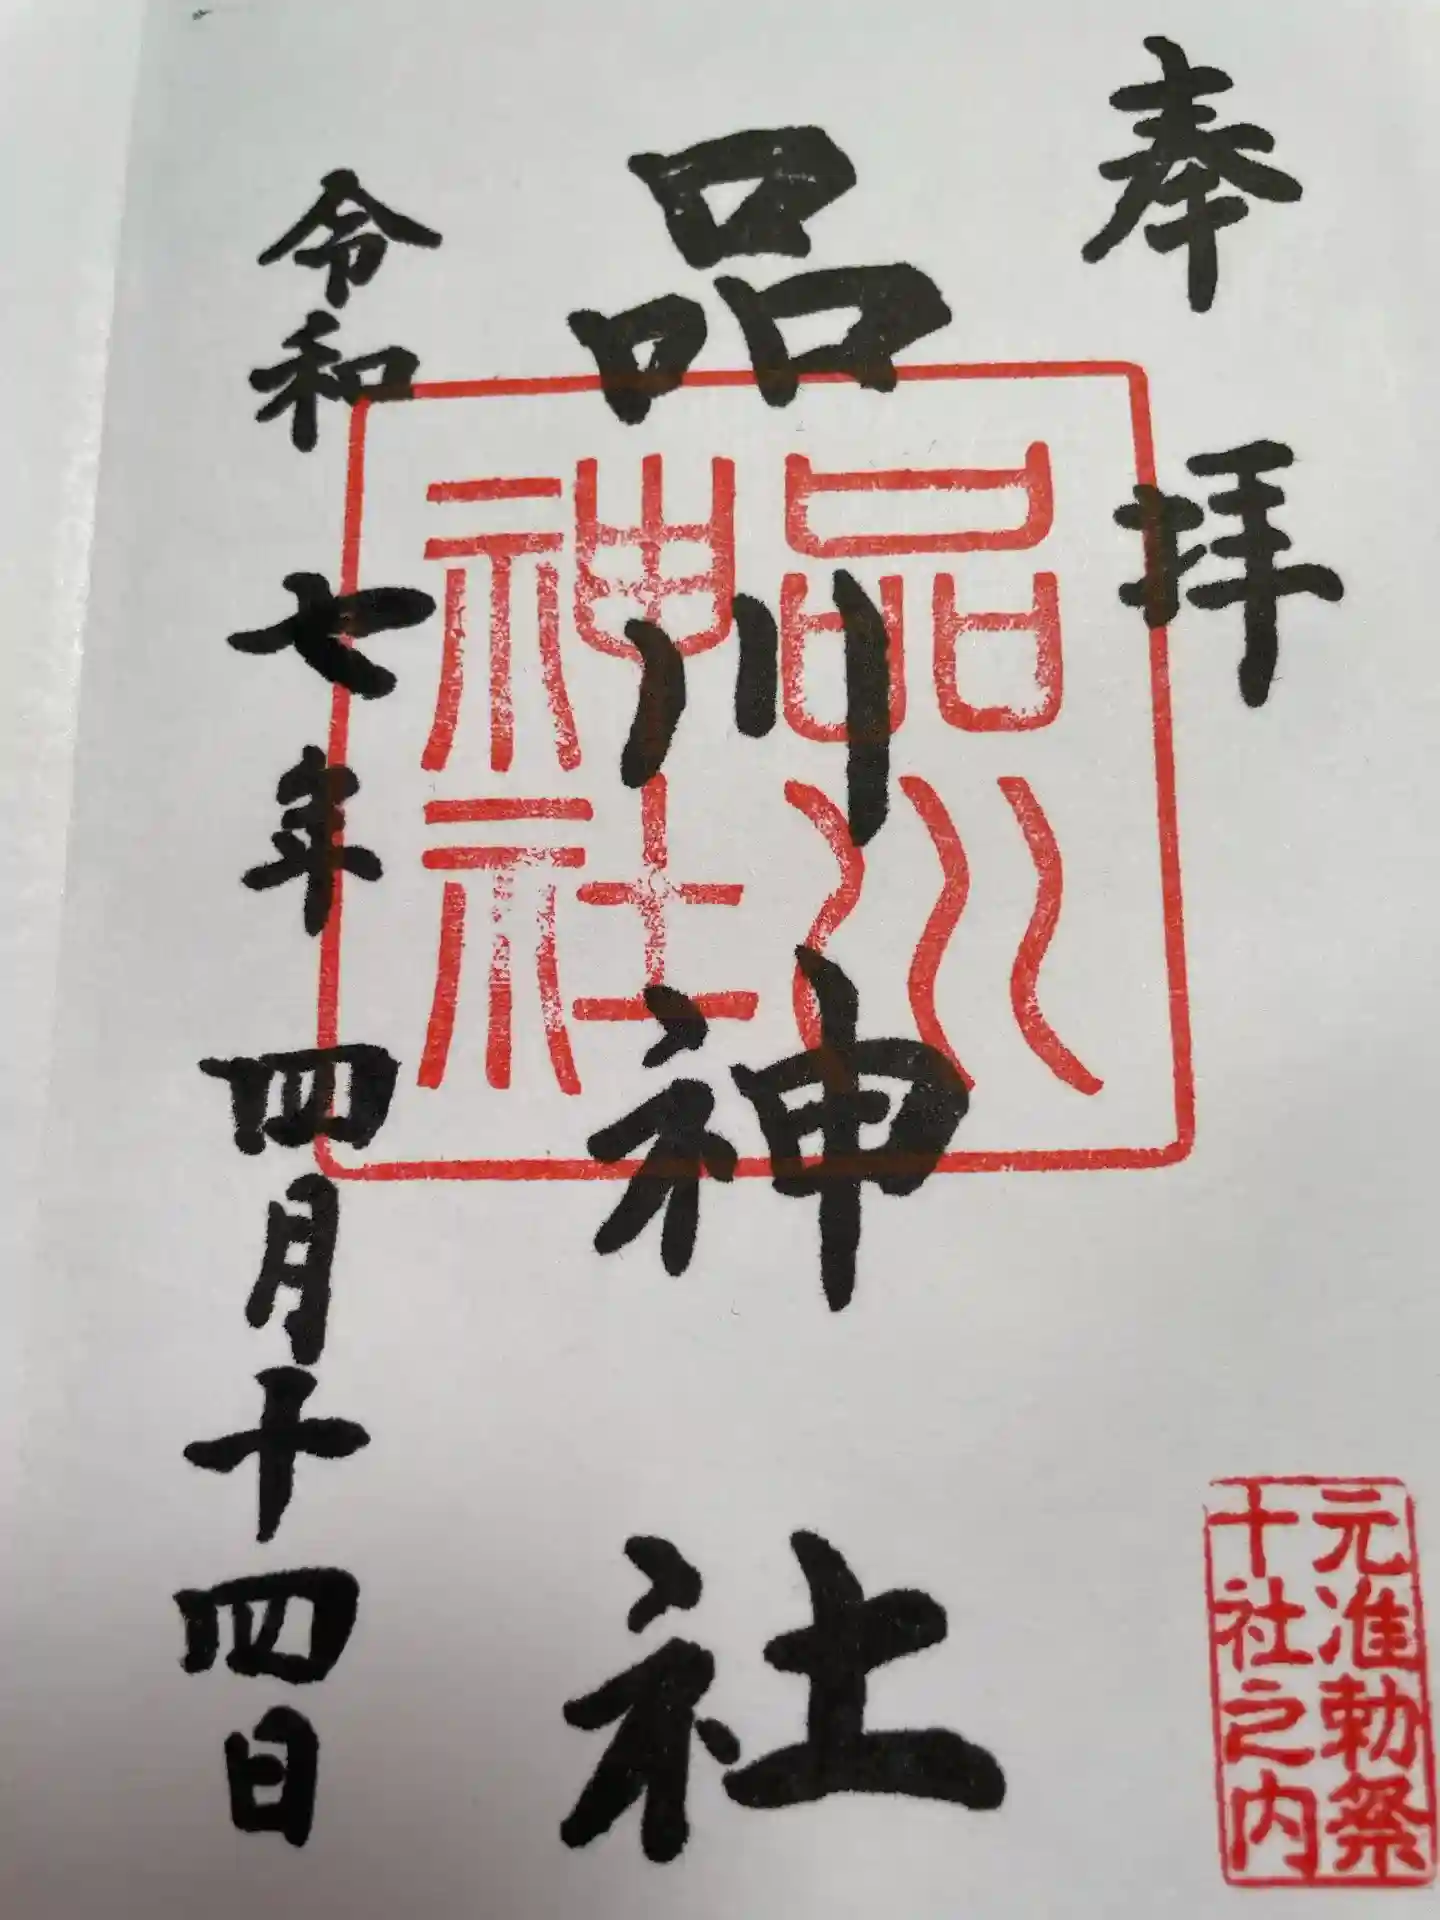 奉拝
品川神社
品川
神社
令和七年四月十四日
元准勅祭
十社之内